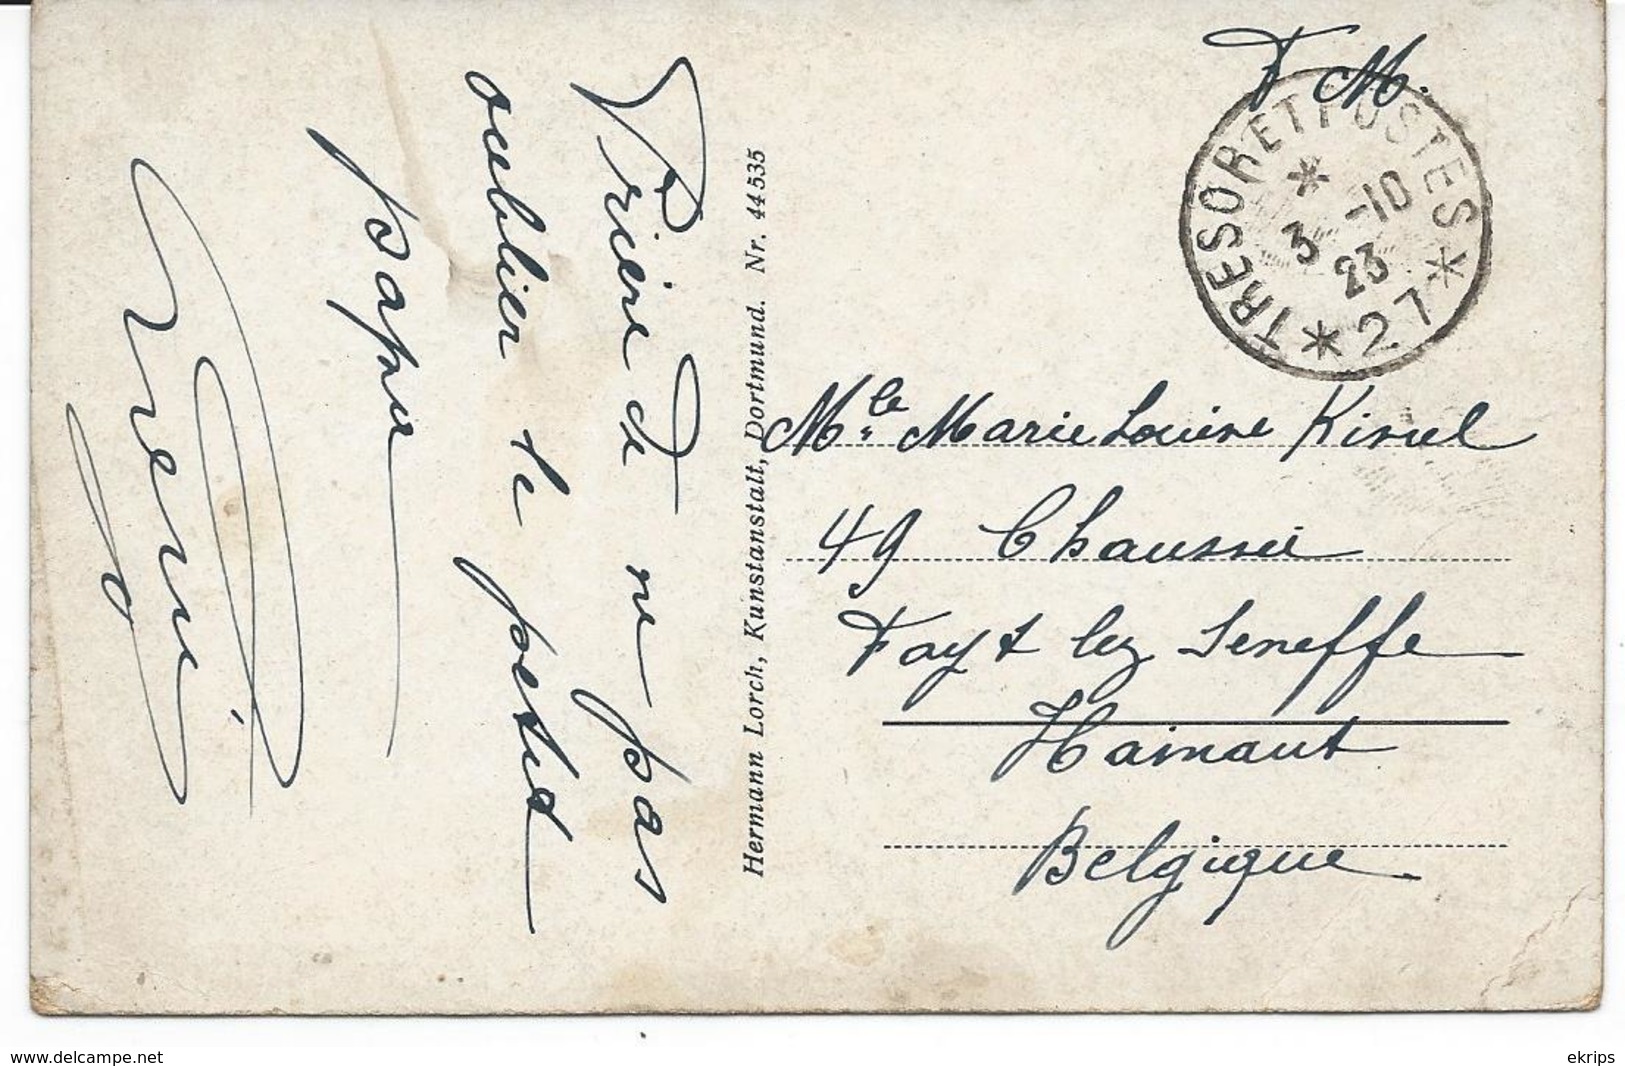 Prière de ne pas
oublier le petit
papier
F M.
TRESOR ET POSTES
3 -10
23
* 27 *
Hermann Lorch, Kunstanstalt, Dortmund. Nr. 44535
Mle Marie Louise
49 Chaussée
Fayt lez Seneffe
Hainaut
Belgique
www.delcampe.net
ekrips